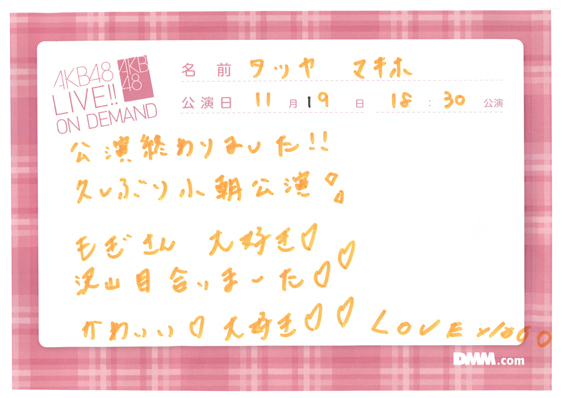 AKB48
LIVE!!
ON DEMAND
AKB
48
名前 タツヤ マキホ
公演日 11月19日 18:30公演
公演終わりました!!
久しぶり小朝公演
もぎさん 大好き♡
沢山目合いました♡♡
かわいい♡ 大好き♡♡ LOVE
DMM.com